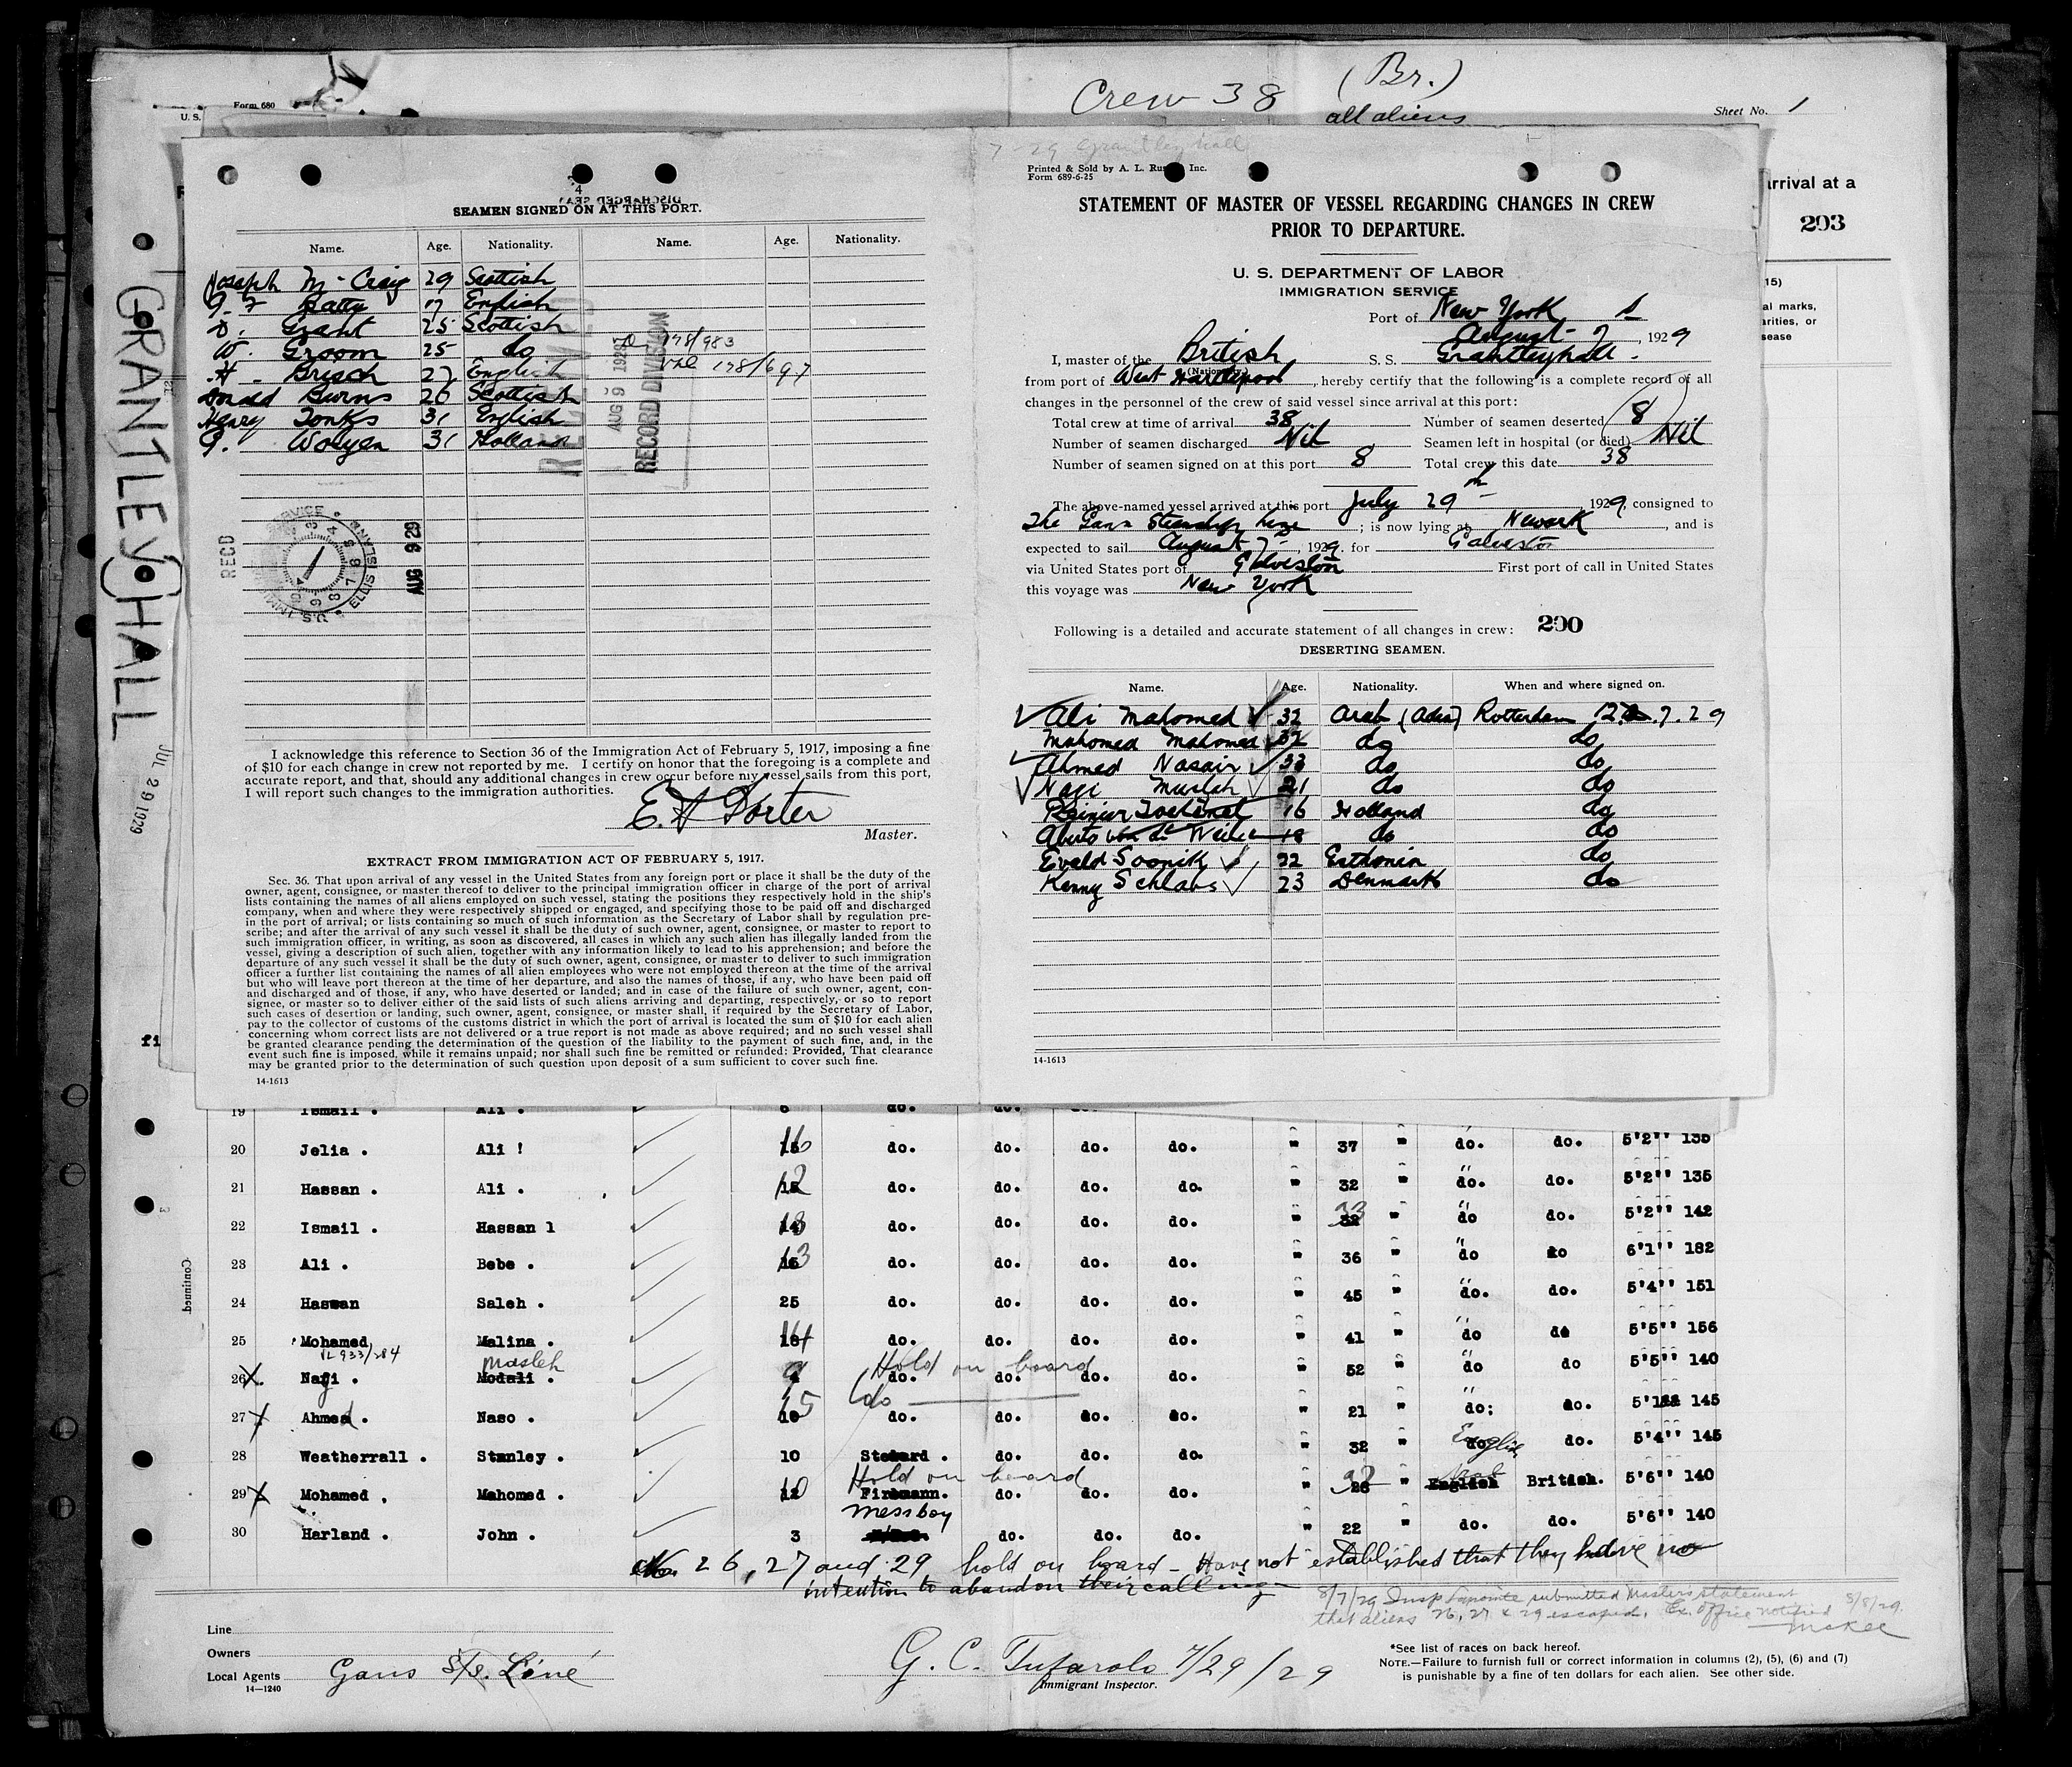 Crew 38 (Br.)
all aliens
Form 680
U. S.
Sheet No. 1
arrival at a
203
GRANTLEY HALL
JUL 29 1929
SEAMEN SIGNED ON AT THIS PORT.
Name. Age. Nationality. Name. Age. Nationality.
Joseph Mc Craig 29 Scottish
Batty English
D. Grant 25 Scottish
W. Groom 25 do
H. Brisch 27 English
Donald Burns 26 Scottish
Henry Tonks 31 English
Wolyen 31 Holland
178/983
178/697
RECEIVED
AUG 9 1929
RECORD DIVISION
RECD
AUG 9 29
ELLIS ISLAND
I acknowledge this reference to Section 36 of the Immigration Act of February 5, 1917, imposing a fine
of $10 for each change in crew not reported by me. I certify on honor that the foregoing is a complete and
accurate report, and that, should any additional changes in crew occur before my vessel sails from this port,
I will report such changes to the immigration authorities.
E. H Porter
Master.
EXTRACT FROM IMMIGRATION ACT OF FEBRUARY 5, 1917.
Sec. 36. That upon arrival of any vessel in the United States from any foreign port or place it shall be the duty of the
owner, agent, consignee, or master thereof to deliver to the principal immigration officer in charge of the port of arrival
lists containing the names of all aliens employed on such vessel, stating the positions they respectively hold in the ship's
company, when and where they were respectively shipped or engaged, and specifying those to be paid off and discharged
in the port of arrival; or lists containing so much of such information as the Secretary of Labor shall by regulation pre-
scribe; and after the arrival of any such vessel it shall be the duty of such owner, agent, consignee, or master to report to
such immigration officer, in writing, as soon as discovered, all cases in which any such alien has illegally landed from the
vessel, giving a description of such alien, together with any information likely to lead to his apprehension; and before the
departure of any such vessel it shall be the duty of such owner, agent, consignee, or master to deliver to such immigration
officer a further list containing the names of all alien employees who were not employed thereon at the time of the arrival
but who will leave port thereon at the time of her departure, and also the names of those, if any, who have been paid off
and discharged and of those, if any, who have deserted or landed; and in case of the failure of such owner, agent, con-
signee, or master so to deliver either of the said lists of such aliens arriving and departing, respectively, or so to report
such cases of desertion or landing, such owner, agent, consignee, or master shall, if required by the Secretary of Labor,
pay to the collector of customs of the customs district in which the port of arrival is located the sum of $10 for each alien
concerning whom correct lists are not delivered or a true report is not made as above required; and no such vessel shall
be granted clearance pending the determination of the question of the liability to the payment of such fine, and, in the
event such fine is imposed, while it remains unpaid; nor shall such fine be remitted or refunded: Provided, That clearance
may be granted prior to the determination of such question upon deposit of a sum sufficient to cover such fine.
14-1613
7-29 Grantley hall
Printed & Sold by A. L. Inc.
Form 689-6-25
STATEMENT OF MASTER OF VESSEL REGARDING CHANGES IN CREW
PRIOR TO DEPARTURE.
U. S. DEPARTMENT OF LABOR
IMMIGRATION SERVICE
Port of New York
August 7, 1929
I, master of the British S. S. Grantleyhall.
(Nationality)
from port of West Hartlepool, hereby certify that the following is a complete record of all
changes in the personnel of the crew of said vessel since arrival at this port:
Total crew at time of arrival 38 Number of seamen deserted 8
Number of seamen discharged Nil Seamen left in hospital (or died) Nil
Number of seamen signed on at this port 8 Total crew this date 38
The above-named vessel arrived at this port July 29th, 1929, consigned to
The Gans Steamship Line; is now lying at Newark, and is
expected to sail August 7, 1929, for Galveston
via United States port of Galveston First port of call in United States
this voyage was New York
Following is a detailed and accurate statement of all changes in crew: 200
DESERTING SEAMEN.
Name. Age. Nationality. When and where signed on.
Ali Mahomed 32 Arab (Aden) Rotterdam 12.7.29
Mahomed Mahomed 32 do do
Ahmed Nasair 33 do do
Nagi Musleh 21 do do
Reinier 16 Holland do
Weile 18 do do
Evald Sosnik 22 Esthonia do
Kenny Schlabs 23 Denmark do
14-1613
Continued
19 Ismail . Ali . do. do. do.
20 Jelia . Ali ! 16 do. do. do. do. " 37 " do. do. 5'2'' 135
21 Hassan . Ali . 12 do. do. do. do. " 32 " do. do. 5'2'' 135
22 Ismail . Hassan 1 13 do. do. do. do. " 33 " do do. 5'2'' 142
23 Ali . Bebe . 13 do. do. do. do. " 36 " do do 6'1'' 182
24 Hassan Saleh . 25 do. do. do. do. " 45 " do. do. 5'4'' 151
25 Mohamed Malina . 14 do. do. do. do. " 41 " do do 5'5'' 156
VL 933/284 Masleh Hold on board
26 X Nagi . Modali . do. do. do. do. " 52 " do do 5'5'' 140
do
27 X Ahmed . Naso . 15 do. do. do. do. " 21 " do: do. 145
28 Weatherrall . Stanley . 10 Steward . do. do. do. " 32 " English do. 5'4'' 145
Hold on board
29 X Mohamed . Mahomed . 10 Firemann. do. do. do. " 32 " Arab English British. 5'6'' 140
messboy
30 Harland . John . 3 do. do. do. " 22 " do. do. 5'6'' 140
No. 26, 27 and 29 hold on board - Have not established that they have no
intention to abandon their calling
8/7/29 Insp Lapointe submitted Masters statement
that aliens 26, 27 & 29 escaped. Ex. office notified 8/8/29.
McKee
Line
Owners
Local Agents Gans S/S. Line
14—1240
G. C. Tufarolo 7/29/29
Immigrant Inspector.
*See list of races on back hereof.
NOTE.—Failure to furnish full or correct information in columns (2), (5), (6) and (7)
is punishable by a fine of ten dollars for each alien. See other side.